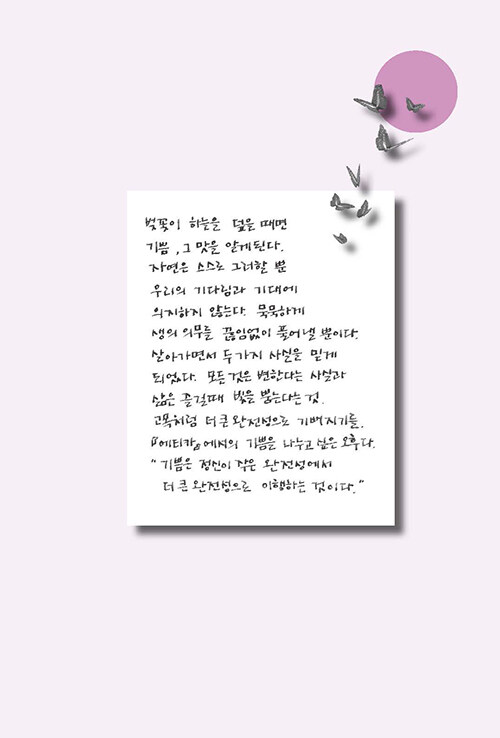 벚꽃이 하늘을 덮을 때면
기쁨, 그 맛을 알게된다.
자연은 스스로 그러할 뿐
우리의 기다림과 기대에
의지하지 않는다. 묵묵하게
생의 의무를 끊임없이 풀어낼 뿐이다.
살아가면서 두가지 사실을 믿게
되었다. 모든 것은 변한다는 사실과
삶은 즐길때 빛을 뿜는다는 것.
고목처럼 더 큰 완전성으로 기뻐지기를.
『에티카』에서의 기쁨을 나누고 싶은 오후다.
"기쁨은 정신이 작은 완전성에서
더 큰 완전성으로 이행하는 것이다."